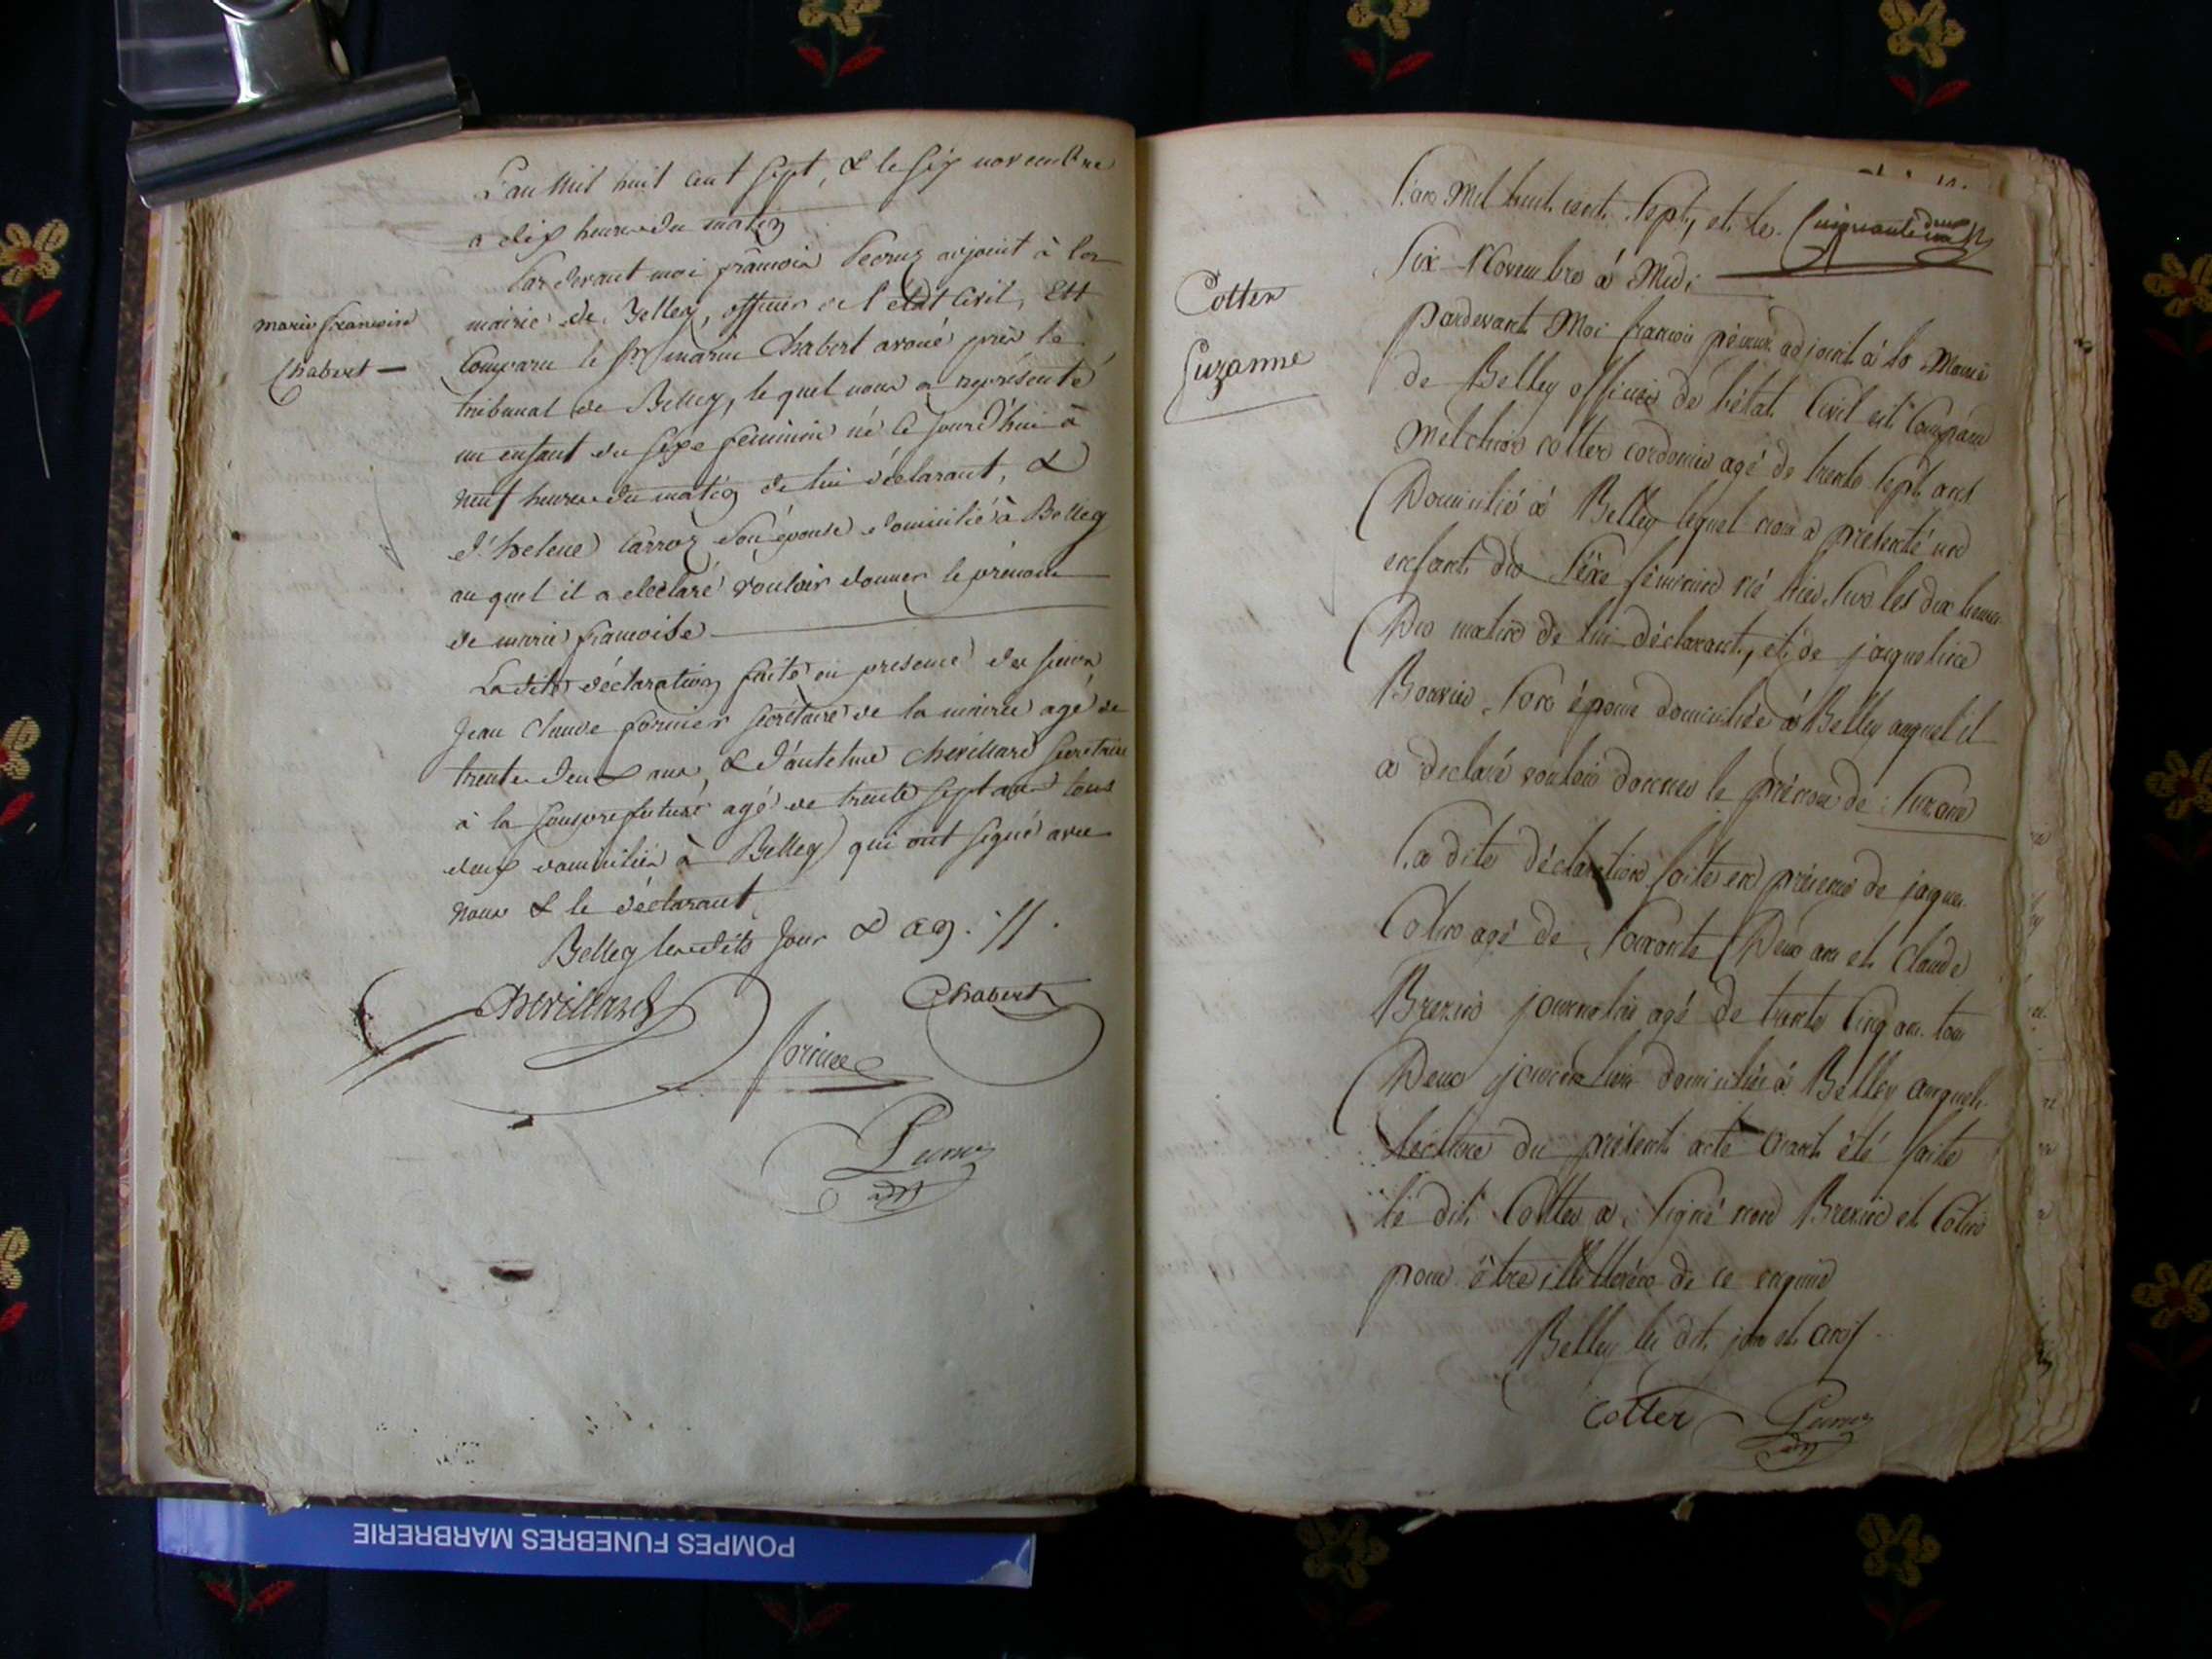 L'an mil huit cent sept, & le six novembre
a dix heures du matin
Par devant moi françois adjoint à la
mairie de Belley, officier de l'etat Civil, Est
marie françoise
Chabert
Comparu le Sr marin Chabert avoué près le
tribunal de Belley, lequel nous a représenté
un enfant du sexe féminin né ce jourd'hui à
neuf heures du matin de lui déclarant, &
d'helene Carroz son épouse domicilié à Belley
au quel il a déclaré vouloir donner le prénom
de marie françoise
La dite déclaration faite en presence des sieurs
Jean Claude secrétaire de la mairie agé de
trente deux ans, & d'antelme chevillard secretaire
à la souspréfecture agé de trente sept ans tous
deux domiciliés à Belley qui ont signé avec
nous & le déclarant
Belley les dits Jour & an.
Chevillard
Chabert
L'an Mil huit cent sept, et le
Cinquante deux
Six Novembre à Midi
Cotter
Suzanne
Pardevant Moi françois adjoint à la Mairie
de Belley officier de l'état Civil est Comparu
Melchior cotter cordonier agé de trente sept ans
Domicilié à Belley lequel nous a présenté un
enfant du sexe féminin né hier sur les dix heures
Du matin de lui déclarant, et de jaqueline
son épouse domiciliée à Belley auquel il
a declaré vouloir donner le prénom de Suzanne
La dite déclaration faite en présence de jaques
agé de soixante Deux ans et Claude
journalier agé de trente Cinq ans tous
Deux journaliers domiciliés à Belley auxquels
lecture du présent acte aiant été faite
le dit Cotter a signé non et
pour être illitterés de ce enquis
Belley les dit jour et an
Cotter
POMPES FUNEBRES MARBRERIE